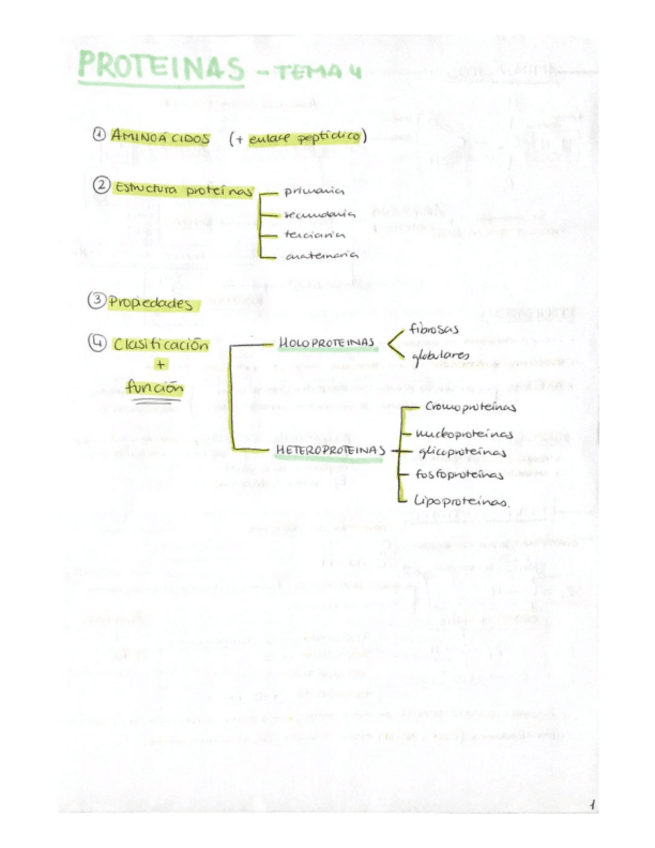 PROTEINAS - TEMA 4
① AMINOÁCIDOS (+ enlace peptídico)
② Estructura proteínas
primaria
secundaria
terciaria
cuaternaria
③ Propiedades
④ Clasificación
+
función
HOLOPROTEINAS
fibrosas
globulares
HETEROPROTEINAS
Cromoproteínas
nucleoproteínas
glicoproteínas
fosfoproteínas
Lipoproteínas.
1